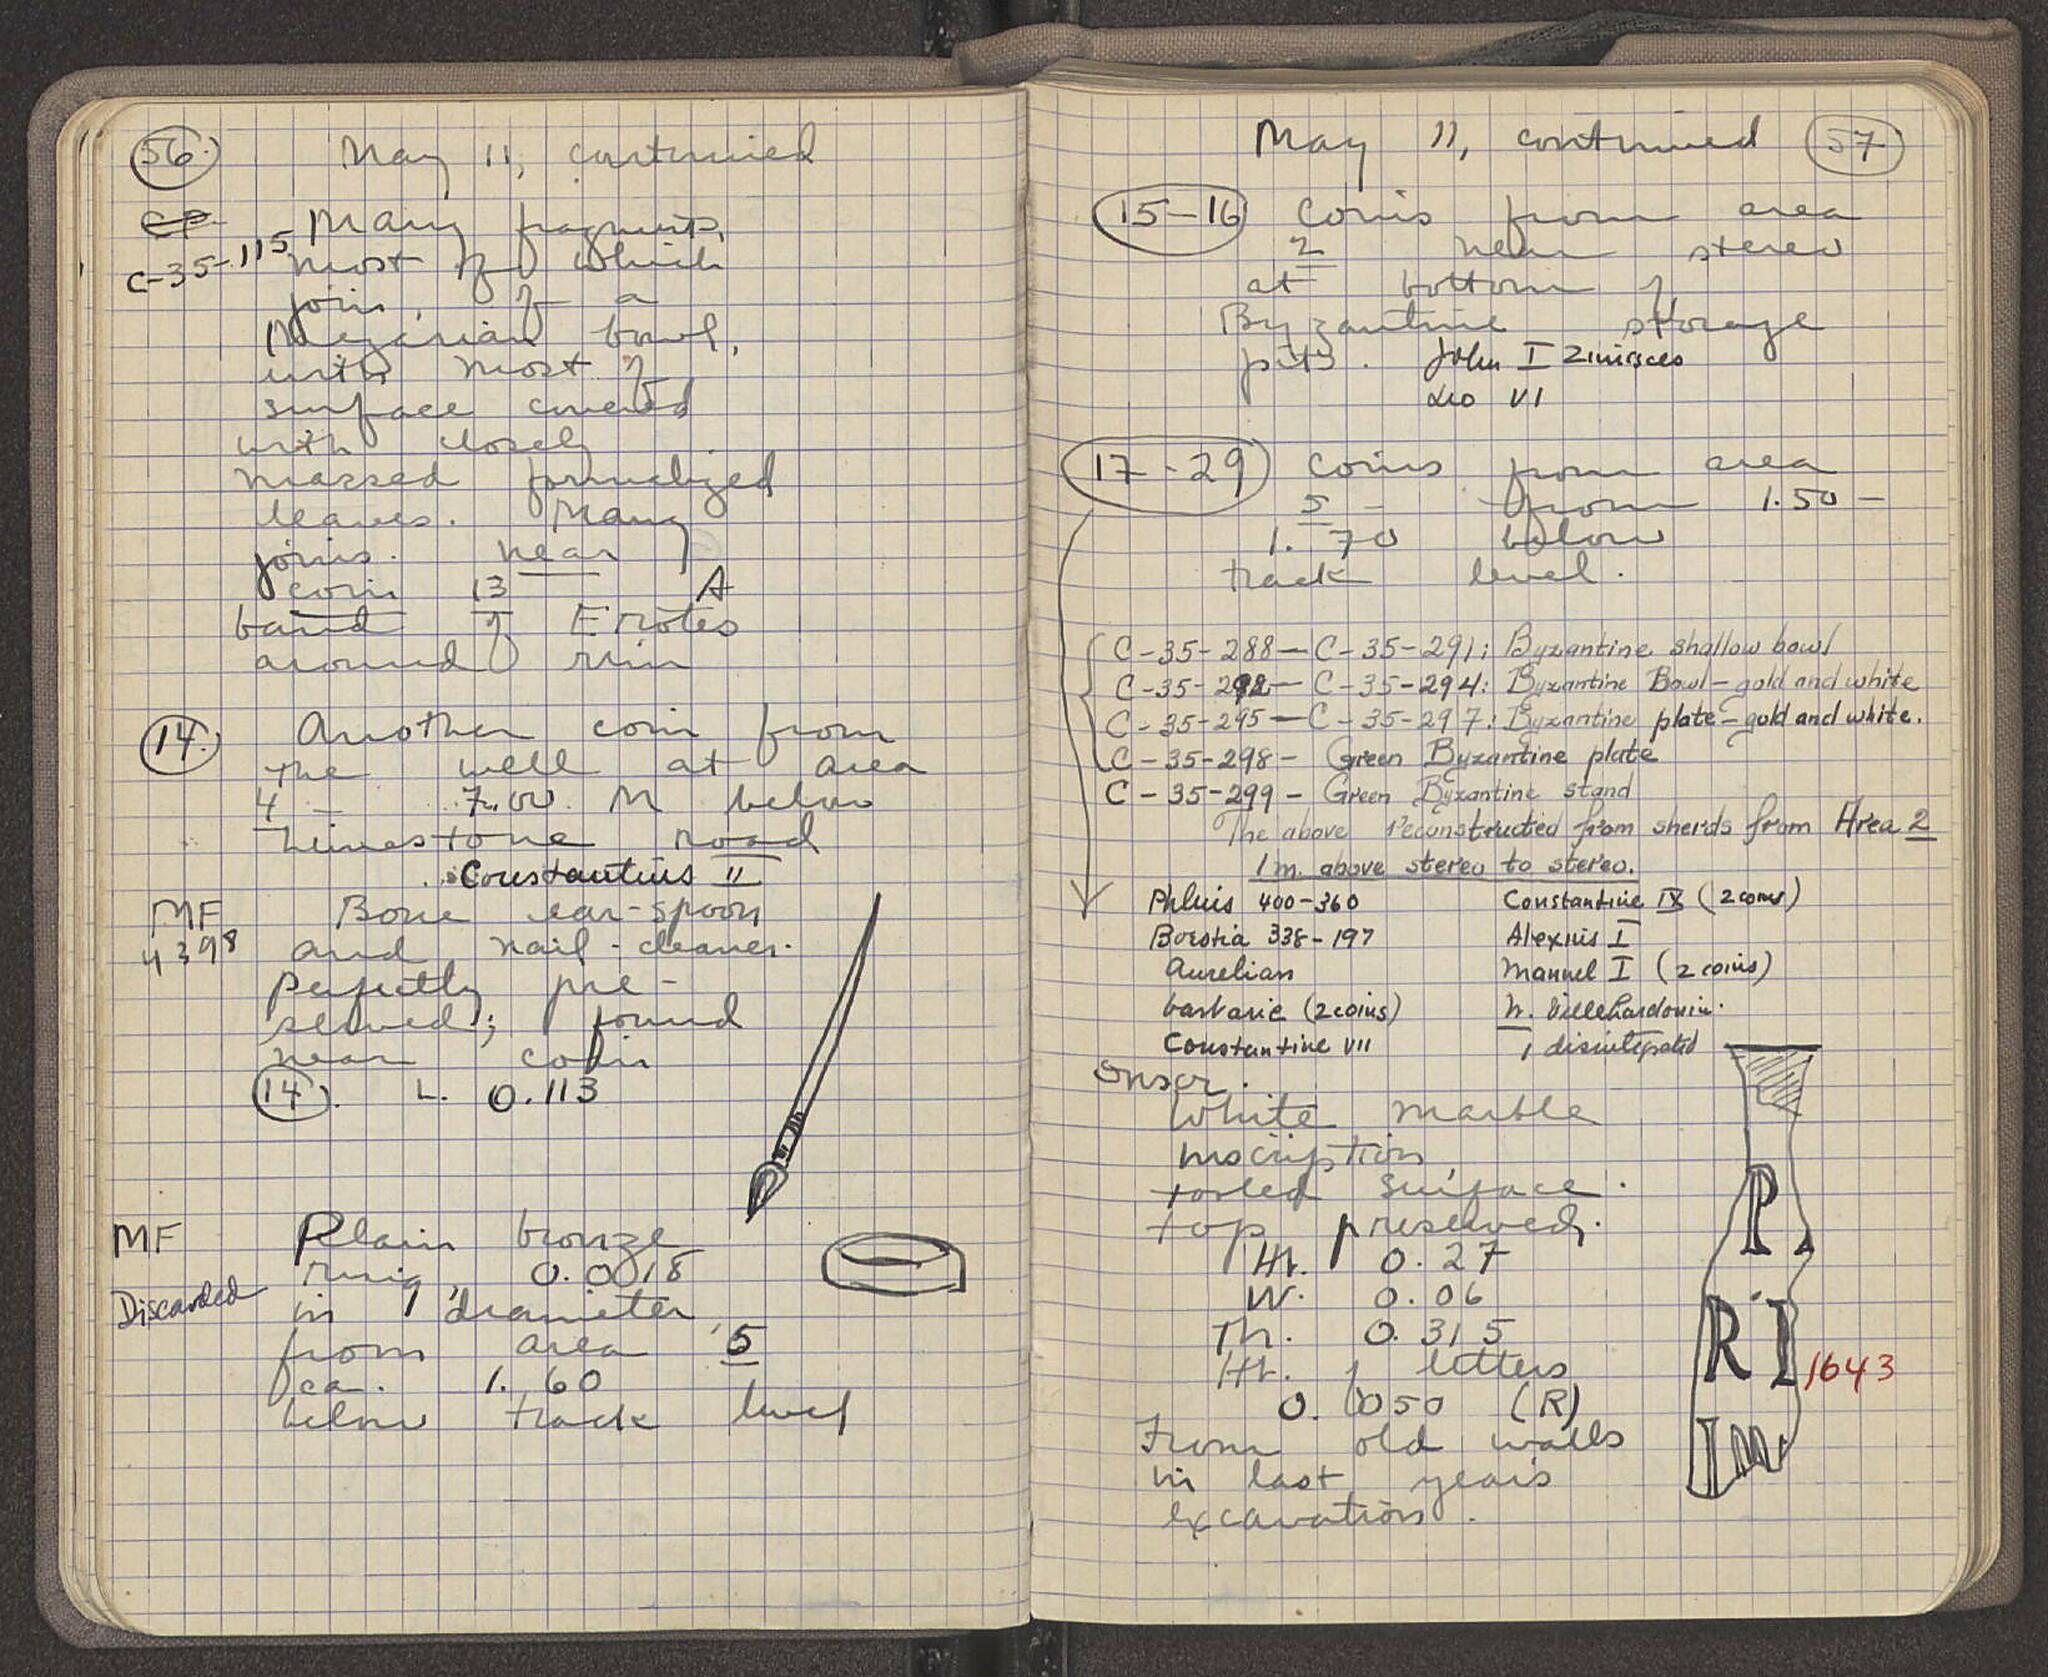 56. May 11, continued
CP Many fragments,
C-35-115 most of which
join, of a
Megarian bowl,
with most of
surface covered
with closely
massed formalized
leaves. Many
joins. near
coin 13 A
band of Erotes
around rim
14. Another coin from
the well at area
4 - 7.00 M below
Limestone road
Constantius II
MF Bone ear-spoon
4398 and nail-cleaner.
Perfectly pre-
served; found
near coin
14. L. 0.113
MF Plain bronze
ring, 0.018
Discarded in diameter,
from area 5
ca. 1.60
below track level
May 11, continued 57
15-16 Coins from area
2 near stereo
at bottom of
Byzantine storage
pits. John I Zimisces
Leo VI
17-29 Coins from area
5 - from 1.50 -
1.70 below
track level.
C-35-288 — C-35-291: Byzantine shallow bowl
C-35-292 — C-35-294: Byzantine Bowl - gold and white
C-35-295 — C-35-297: Byzantine plate - gold and white.
C-35-298 - Green Byzantine plate
C-35-299 - Green Byzantine stand
The above reconstructed from sherds from Area 2
1 m. above stereo to stereo.
Phlius 400-360 Constantine IX (2 coins)
Boeotia 338-197 Alexius I
Aurelian Manuel I (2 coins)
barbaric (2 coins) W. Villehardouin.
Constantine VII 1 disintegrated
Inscr.
White marble
inscription,
tooled surface.
top preserved.
Ht. 0.27
W. 0.06
Th. 0.315
Ht. of letters
0.050 (R)
From old walls
in last year's
excavation.
P.
R I
I M
1643